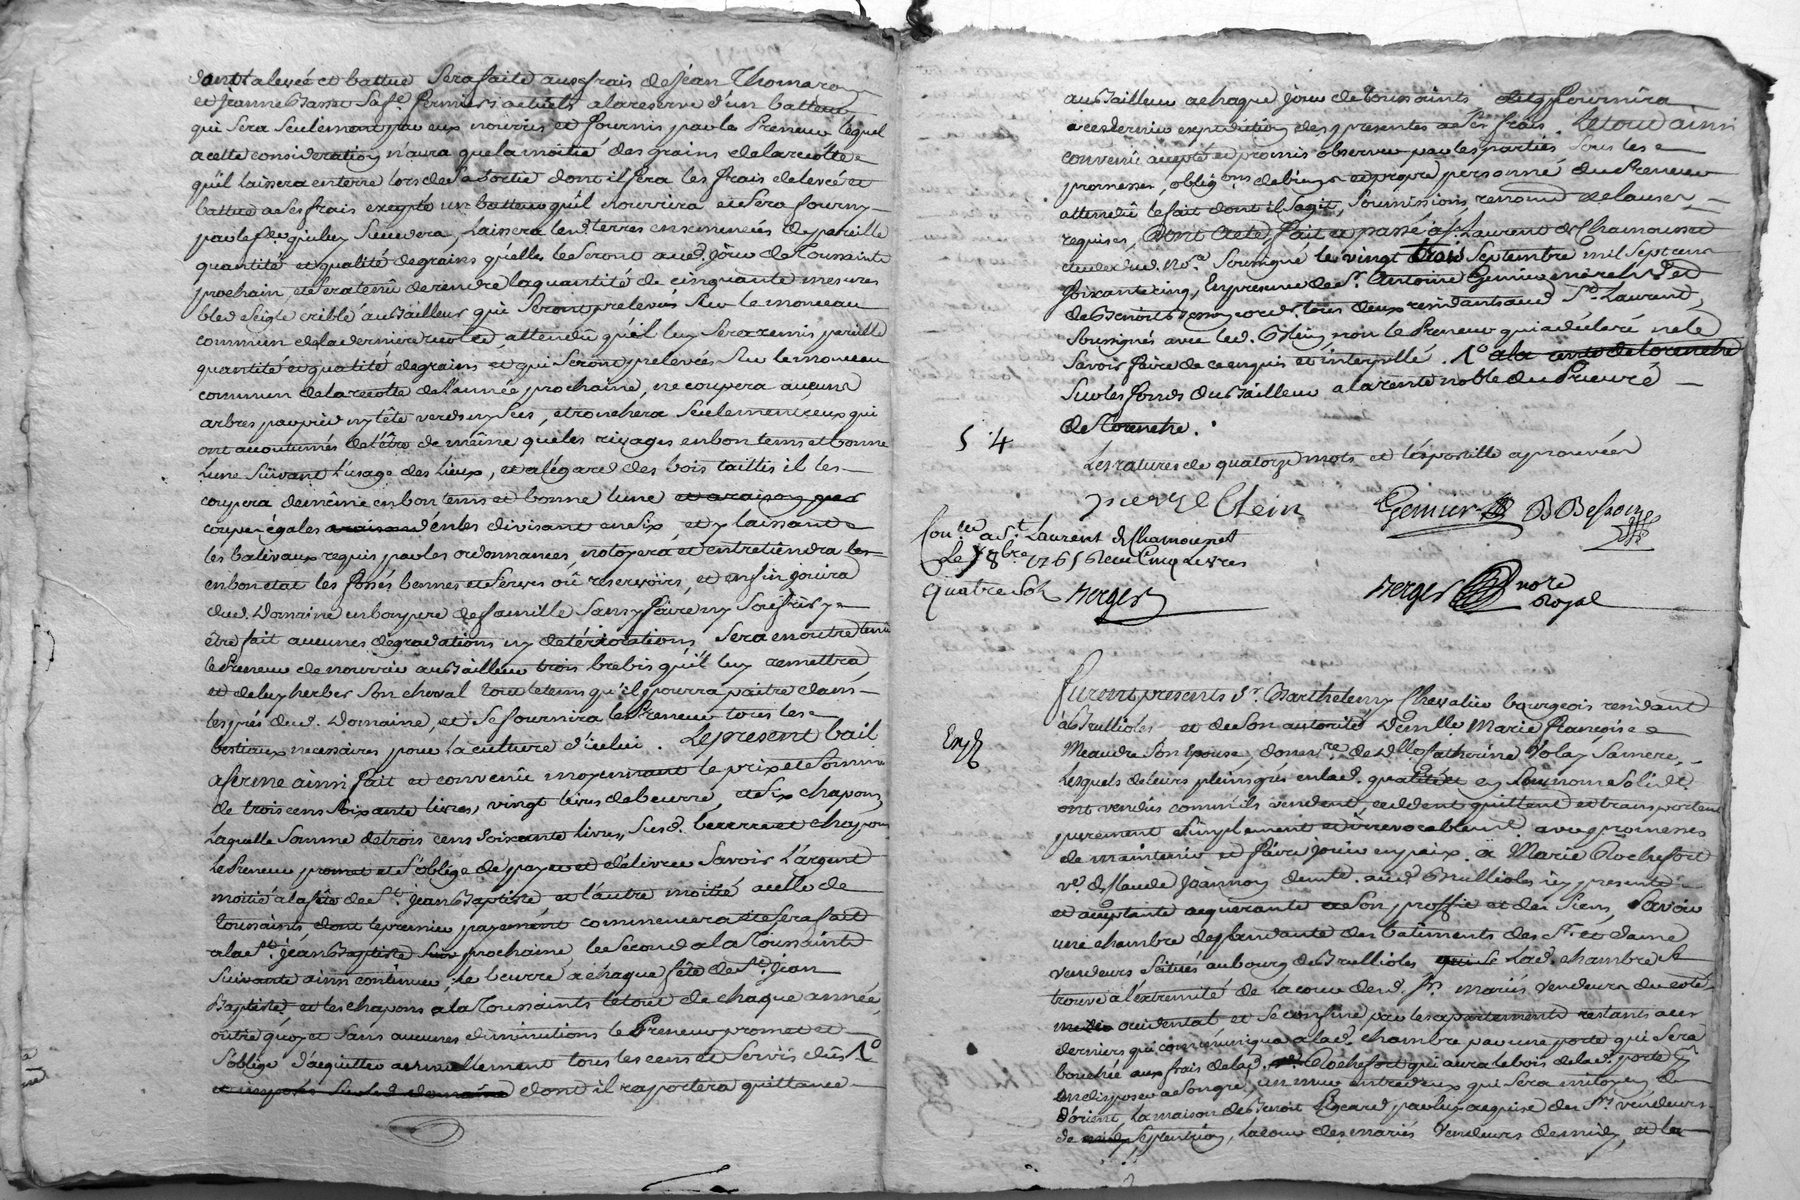 dont la levée et battue sera faite aux frais de jean Thomas
et jeanne Basset sa fe. fermiers actuels a la reserve d'un batteur
qui sera seulement par eux nourris et fournis par le Preneur lequel
a cette consideration n'aura que la moitié des grains de la recolte
qu'il laissera en terre lors de sa sortie dont il fera les frais de levée et
battue a ses frais excepté un batteur qu'il nourrira et sera fourny
par le f. qui luy succedera, laissera led. terres ensemencées de pareille
quantité et qualité de grains qu'elles le seront aud. jour de Toussaints
prochain, et sera tenû de rendre la quantité de cinquante mesures
bled seigle criblé au Bailleur qui seront prelevés sur le monceau
commun de la derniere recolte, attendû qu'il luy sera remis pareille
quantité et qualité de grains et qui seront prelevées sur le monceau
commun de la recolte de l'année prochaine, ne coupera aucuns
arbres par pied ny tête verds ny secs, etronchera seulement ceux qui
ont accoutumés de l'être de même que les rivages en bon tems et bonne
lune suivant l'usage des lieux, et a l'égard des bois taillis il les
coupera de même en bon tems et bonne lune et a raison par
coupe égales a raison d'en les divisant en six, et y laissant
les balivaux requis par les ordonnances, netoyera et entretiendra les
en bon etat les fossés bennes et serves où reservoirs, et enfin jouira
dud. Domaine en bon pere de famille sans y faire ny soufrir y
être fait aucunes dégradations ny détériorations, sera en outre tenu
le Preneur de nourrir au Bailleur trois brebis qu'il luy remettra
et de luy herber son cheval tout le tems qu'il pourra paitre dans
les prés dud. Domaine, et se fournira le Preneur tous les
bestiaux necessaires pour la culture d'icelui. Le present bail
a ferme ainsi fait et convenû moyennant le prix et somme
de trois cens soixante livres, vingt livres de beurre, et six chapons,
laquelle somme de trois cens soixante livres, susd. beurre et chapons
le Preneur promet et s'oblige de payer et délivrer savoir l'argent
moitié a la fête de St. jean Baptiste et l'autre moitié a celle de
toussaints dont le premier payement commencera et se fera fait
a la St. jean Baptiste prochaine le second a la Toussaints
suivante ainsi continuer, le beurre a chaque fête de St. jean
Baptiste, et les chapons a la Toussaints le tout de chaque année,
outre quoy et sans aucunes diminutions le Preneur promet et
s'oblige d'aquitter annuellement tous les cens et servis dûs 1°
et imposés sur led. domaine dont il raportera quittance
au Bailleur a chaque jour de Toussaints et fournira
a ce dernier expedition des presentes a ses frais. Le tout ainsi
convenû accepté et promis observer par les parties sous les
promesses, obligons. de biens et propre personne du Preneur
attendû le fait dont il s'agit, soumissions, renond. et clauses
requises, Dont acte, fait et passé a St. Laurent de Chamousset
etude dud. No.re soussigné le vingt trois Septembre mil sept cens
soixante cinq, en presence de Sr. Antoine Gemier
de Benoit tous deux residants aud. St. Laurent,
soussignés avec led. Clein, non le Preneur qui a déclaré ne le
savoir faire de ce enquis et interpellé. 1° a la rente de torenche
sur les fonds du Bailleur a la rente noble du Prieuré
de Torenche.
5 4
Les ratures de quatorze mots et l'apostille aprouvées
pierre Clein Gemier B Besson
Con.lee a St. Laurent de Chamousset
Le 8bre 1765 Reçu Cinq Livres
quatre Sols Berger
Berger nore
Royal
Furent presents Sr. Barthelemy Chevalier bourgeois residant
à Brullioles et de son autorité Demlle. Marie Françoise
Meaudre son epouse, donnre. de Dlle. Catherine Volay sa mere,
Exp.
Lesquels de leurs pleins grés en lad. qualité et en leur nom solidt.
ont vendus comm'ils vendent, cedent quittent et transportent
purement simplement et irrevocablemt. avec promesses
de maintenir et faire jouir en paix. a Marie Rochefort
ve. de Claude Joannon demte. aud. Brullioles icy presente
et acceptante aquerante a son proffit et des siens, savoir
une chambre dependante des batiments des Sr. et dame
vendeurs scitués au bourg de Brullioles qui se lad. chambre se
trouve a l'extremité de la cour desd. Srs. mariés vendeurs du coté
occidental et se confine par les apartements restants a ces
derniers qui communiqua a lad. chambre par une porte qui sera
bouchée aux frais de lad. Rochefort qui aura le bois de lad. porte pr.
en disposer a son gré, un mur entre deux qui sera mitoyen de
d'orient la maison de Benoit par luy acquise des Srs. vendeurs
de septentrion, la cour des mariés vendeurs de midy, et la